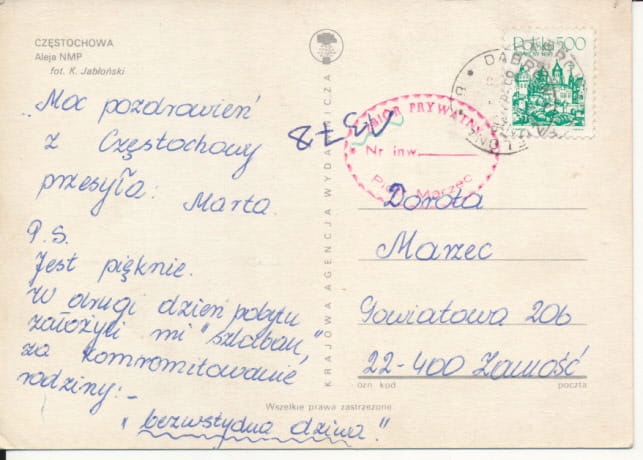 CZĘSTOCHOWA
Aleja NMP
fot. K. Jabłoński
„Moc pozdrowień
z Częstochowy
przesyła: Marta.
P.S.
Jest pięknie.
W drugi dzień pobytu
założyli mi "szlaban,"
za kompromitowanie
rodziny:-
"bezwstydna dziwa."
KRAJOWA AGENCJA WYDAWNICZA
Polska 500
ZBIÓR PRYWATNY
Nr inw.
Piotr Marzec
Dorota
Marzec
Powiatowa 20b
22-400 Zamość
ozn kod
poczta
Wszelkie prawa zastrzeżone